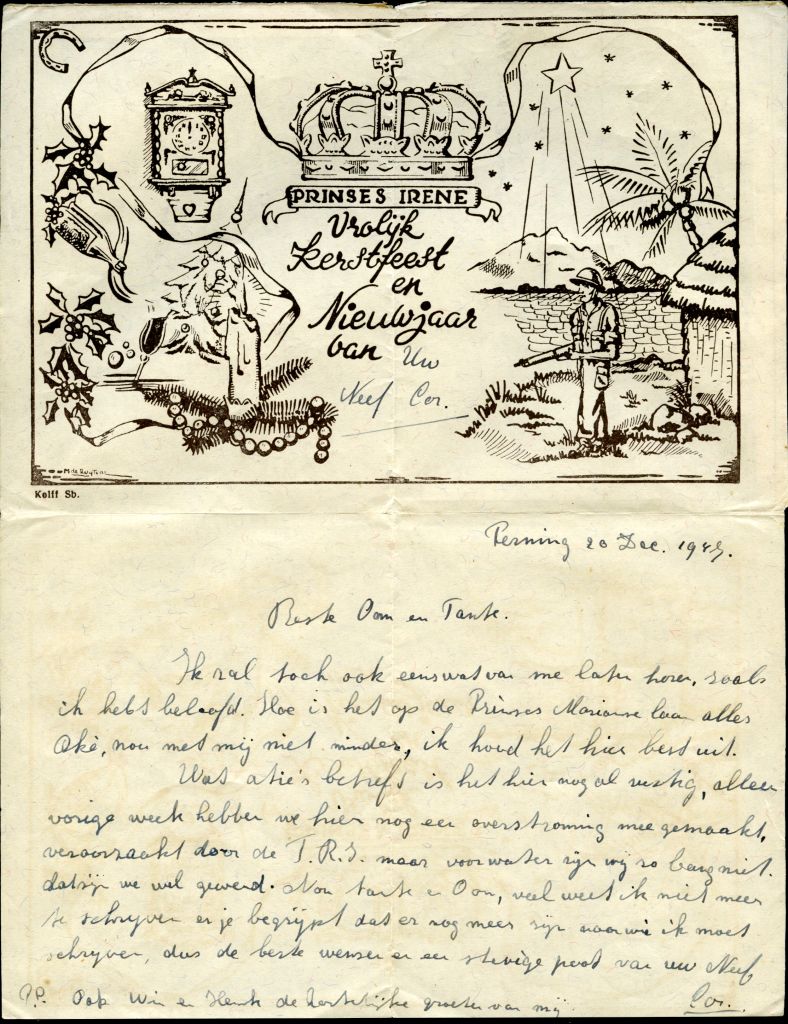 PRINSES IRENE
Vrolijk
Kerstfeest
en
Nieuwjaar
van Uw
Neef Cor.
Kolff Sb.
Perning 20 Dec. 1947.
Beste Oom en Tante.
Ik zal toch ook eens wat van me laten horen, zoals
ik hebt beloofd. Hoe is het op de Prinses Marianne laan alles
Oké, nou met mij niet minder, ik houd het hier best uit.
Wat atie's betreft is het hier nog al rustig, alleen
vorige week hebben we hier nog een overstroming mee gemaakt,
veroorzaakt door de T.R.I. maar voor water zijn wij zo bang niet.
dat zijn we wel gewend. Nou tante en Oom, veel weet ik niet meer
te schrijven en je begrijpt dat er nog meer zijn naar wie ik moet
schrijven, dus de beste wensen en een stevige poot van uw Neef
Cor.
P.P. Ook Wim en Henk de hartelijke groeten van mij.